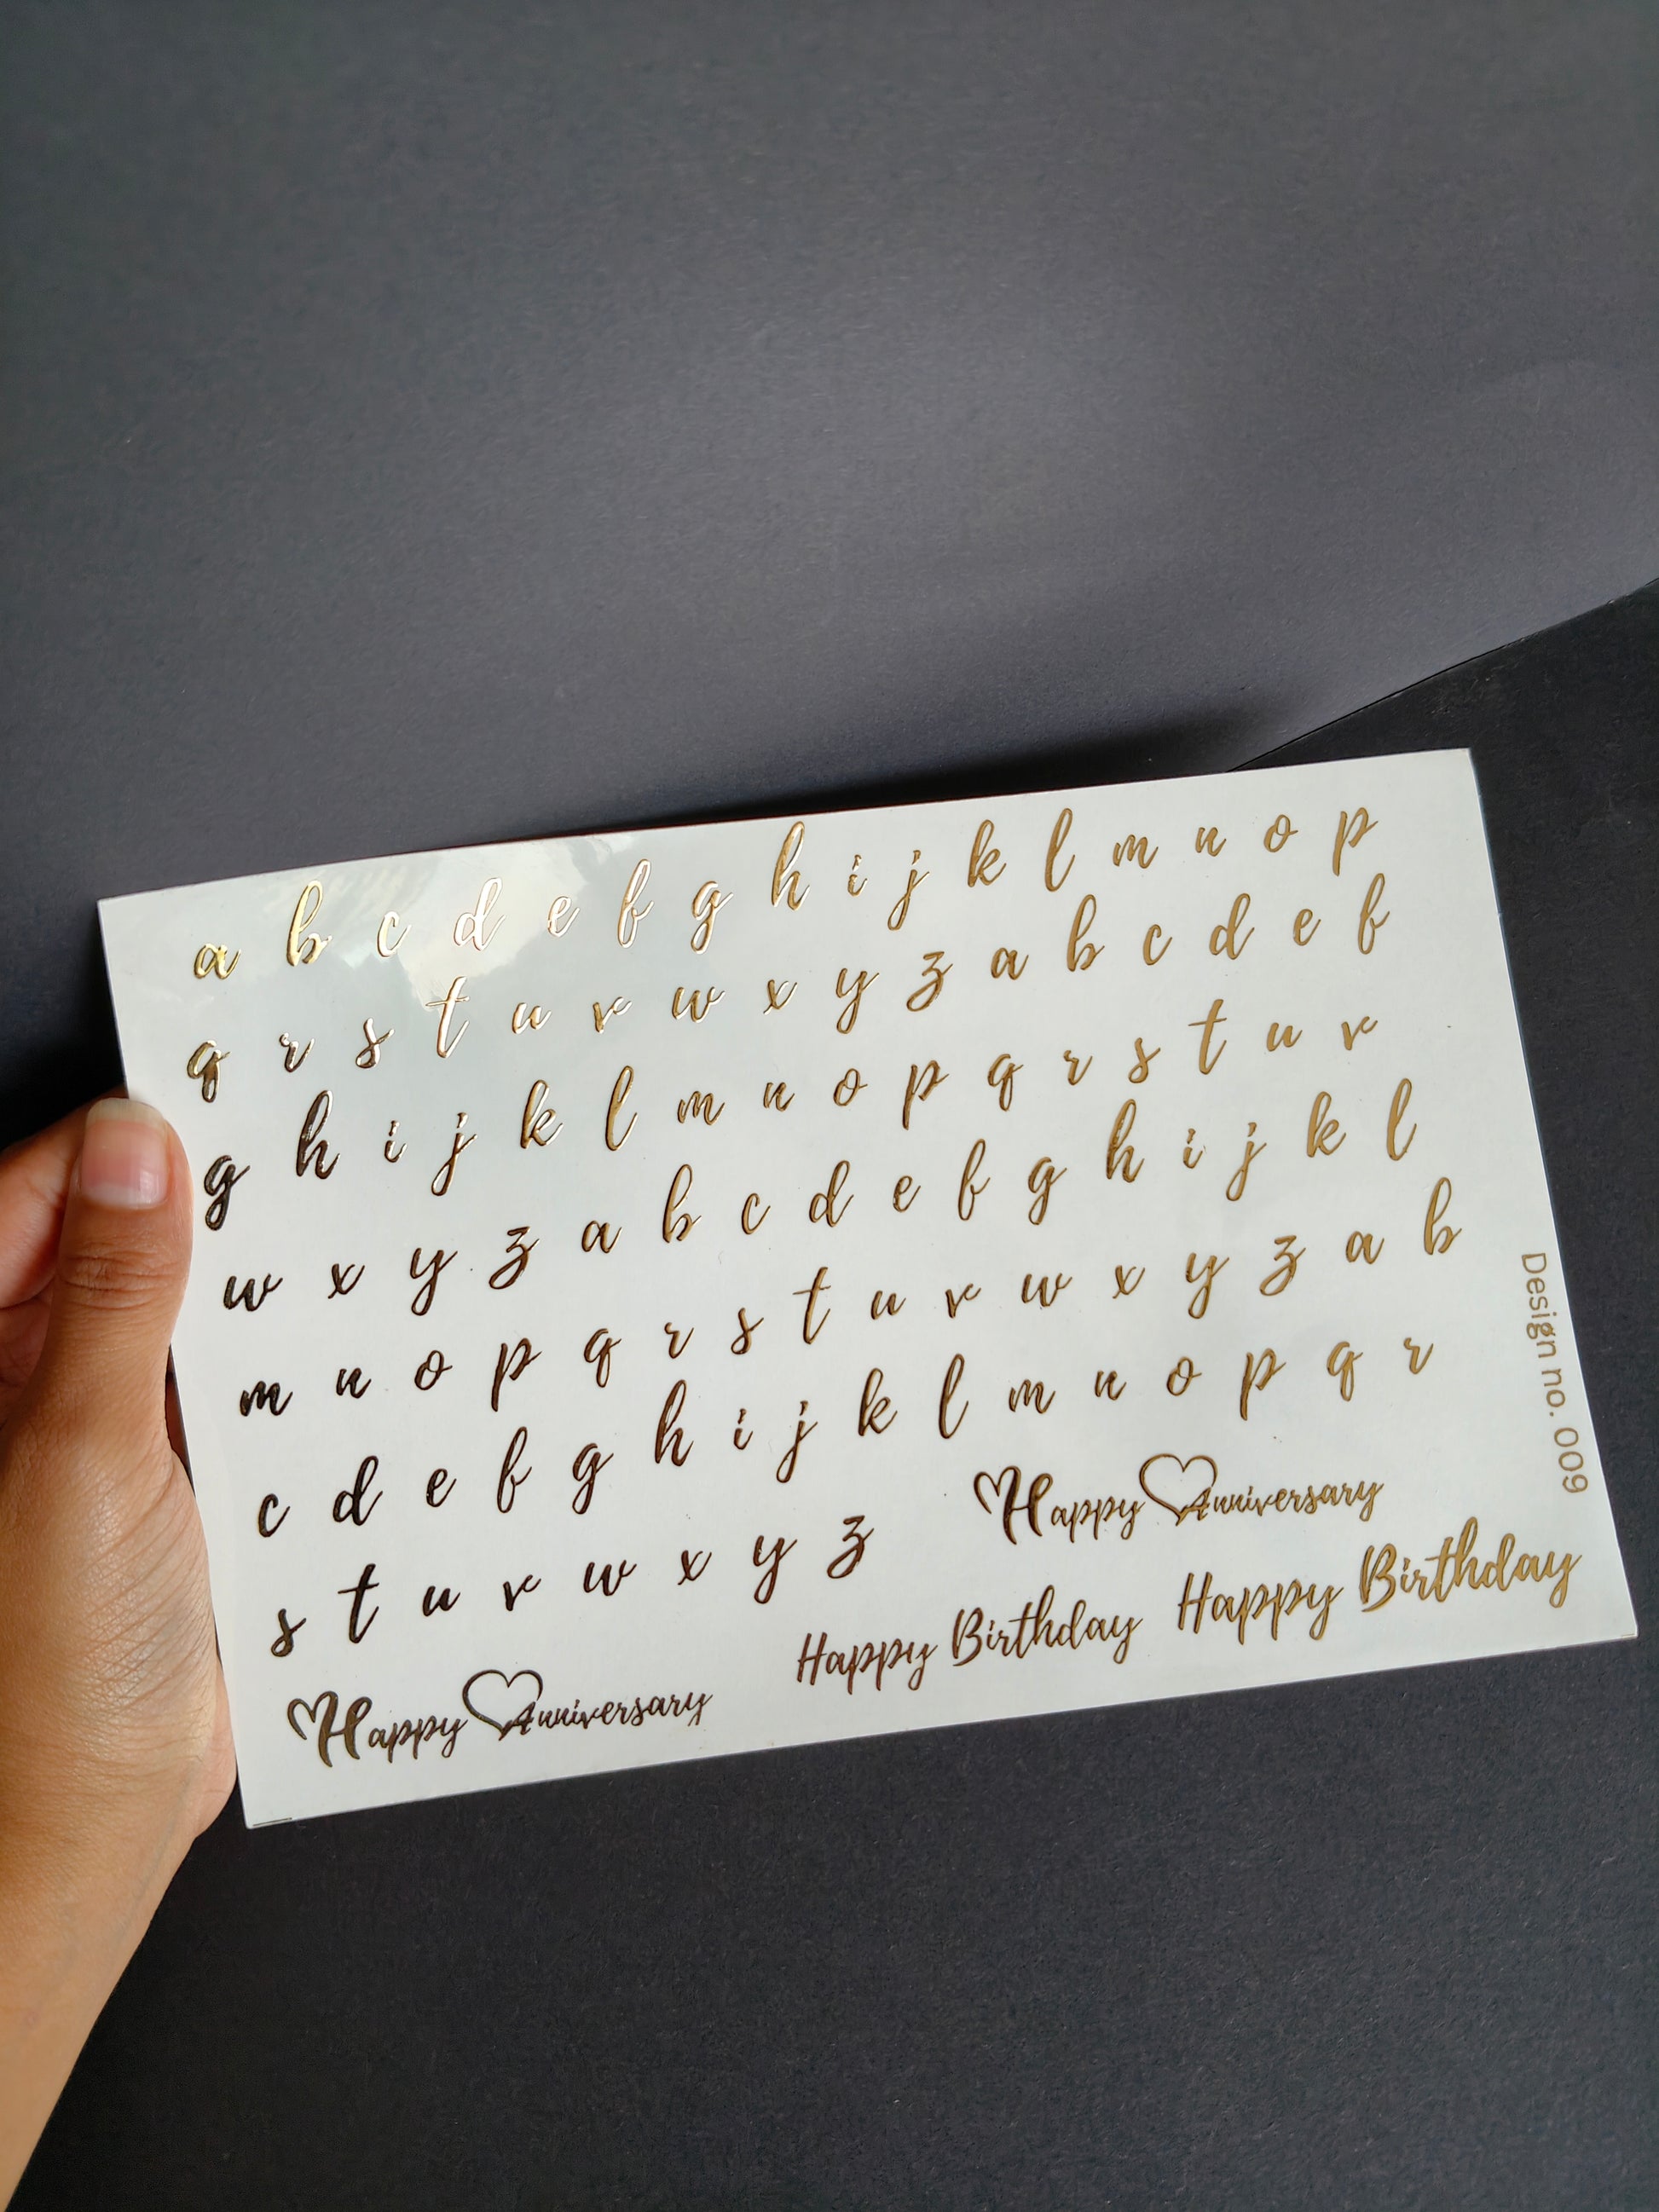 a b c d e f g h i j k l m n o p
q r s t u v w x y z a b c d e f
g h i j k l m n o p q r s t u v
w x y z a b c d e f g h i j k l
m n o p q r s t u v w x y z a b
c d e f g h i j k l m n o p q r
s t u v w x y z
Happy Anniversary
Happy Birthday
Happy Birthday
Happy Anniversary
Design no. 009